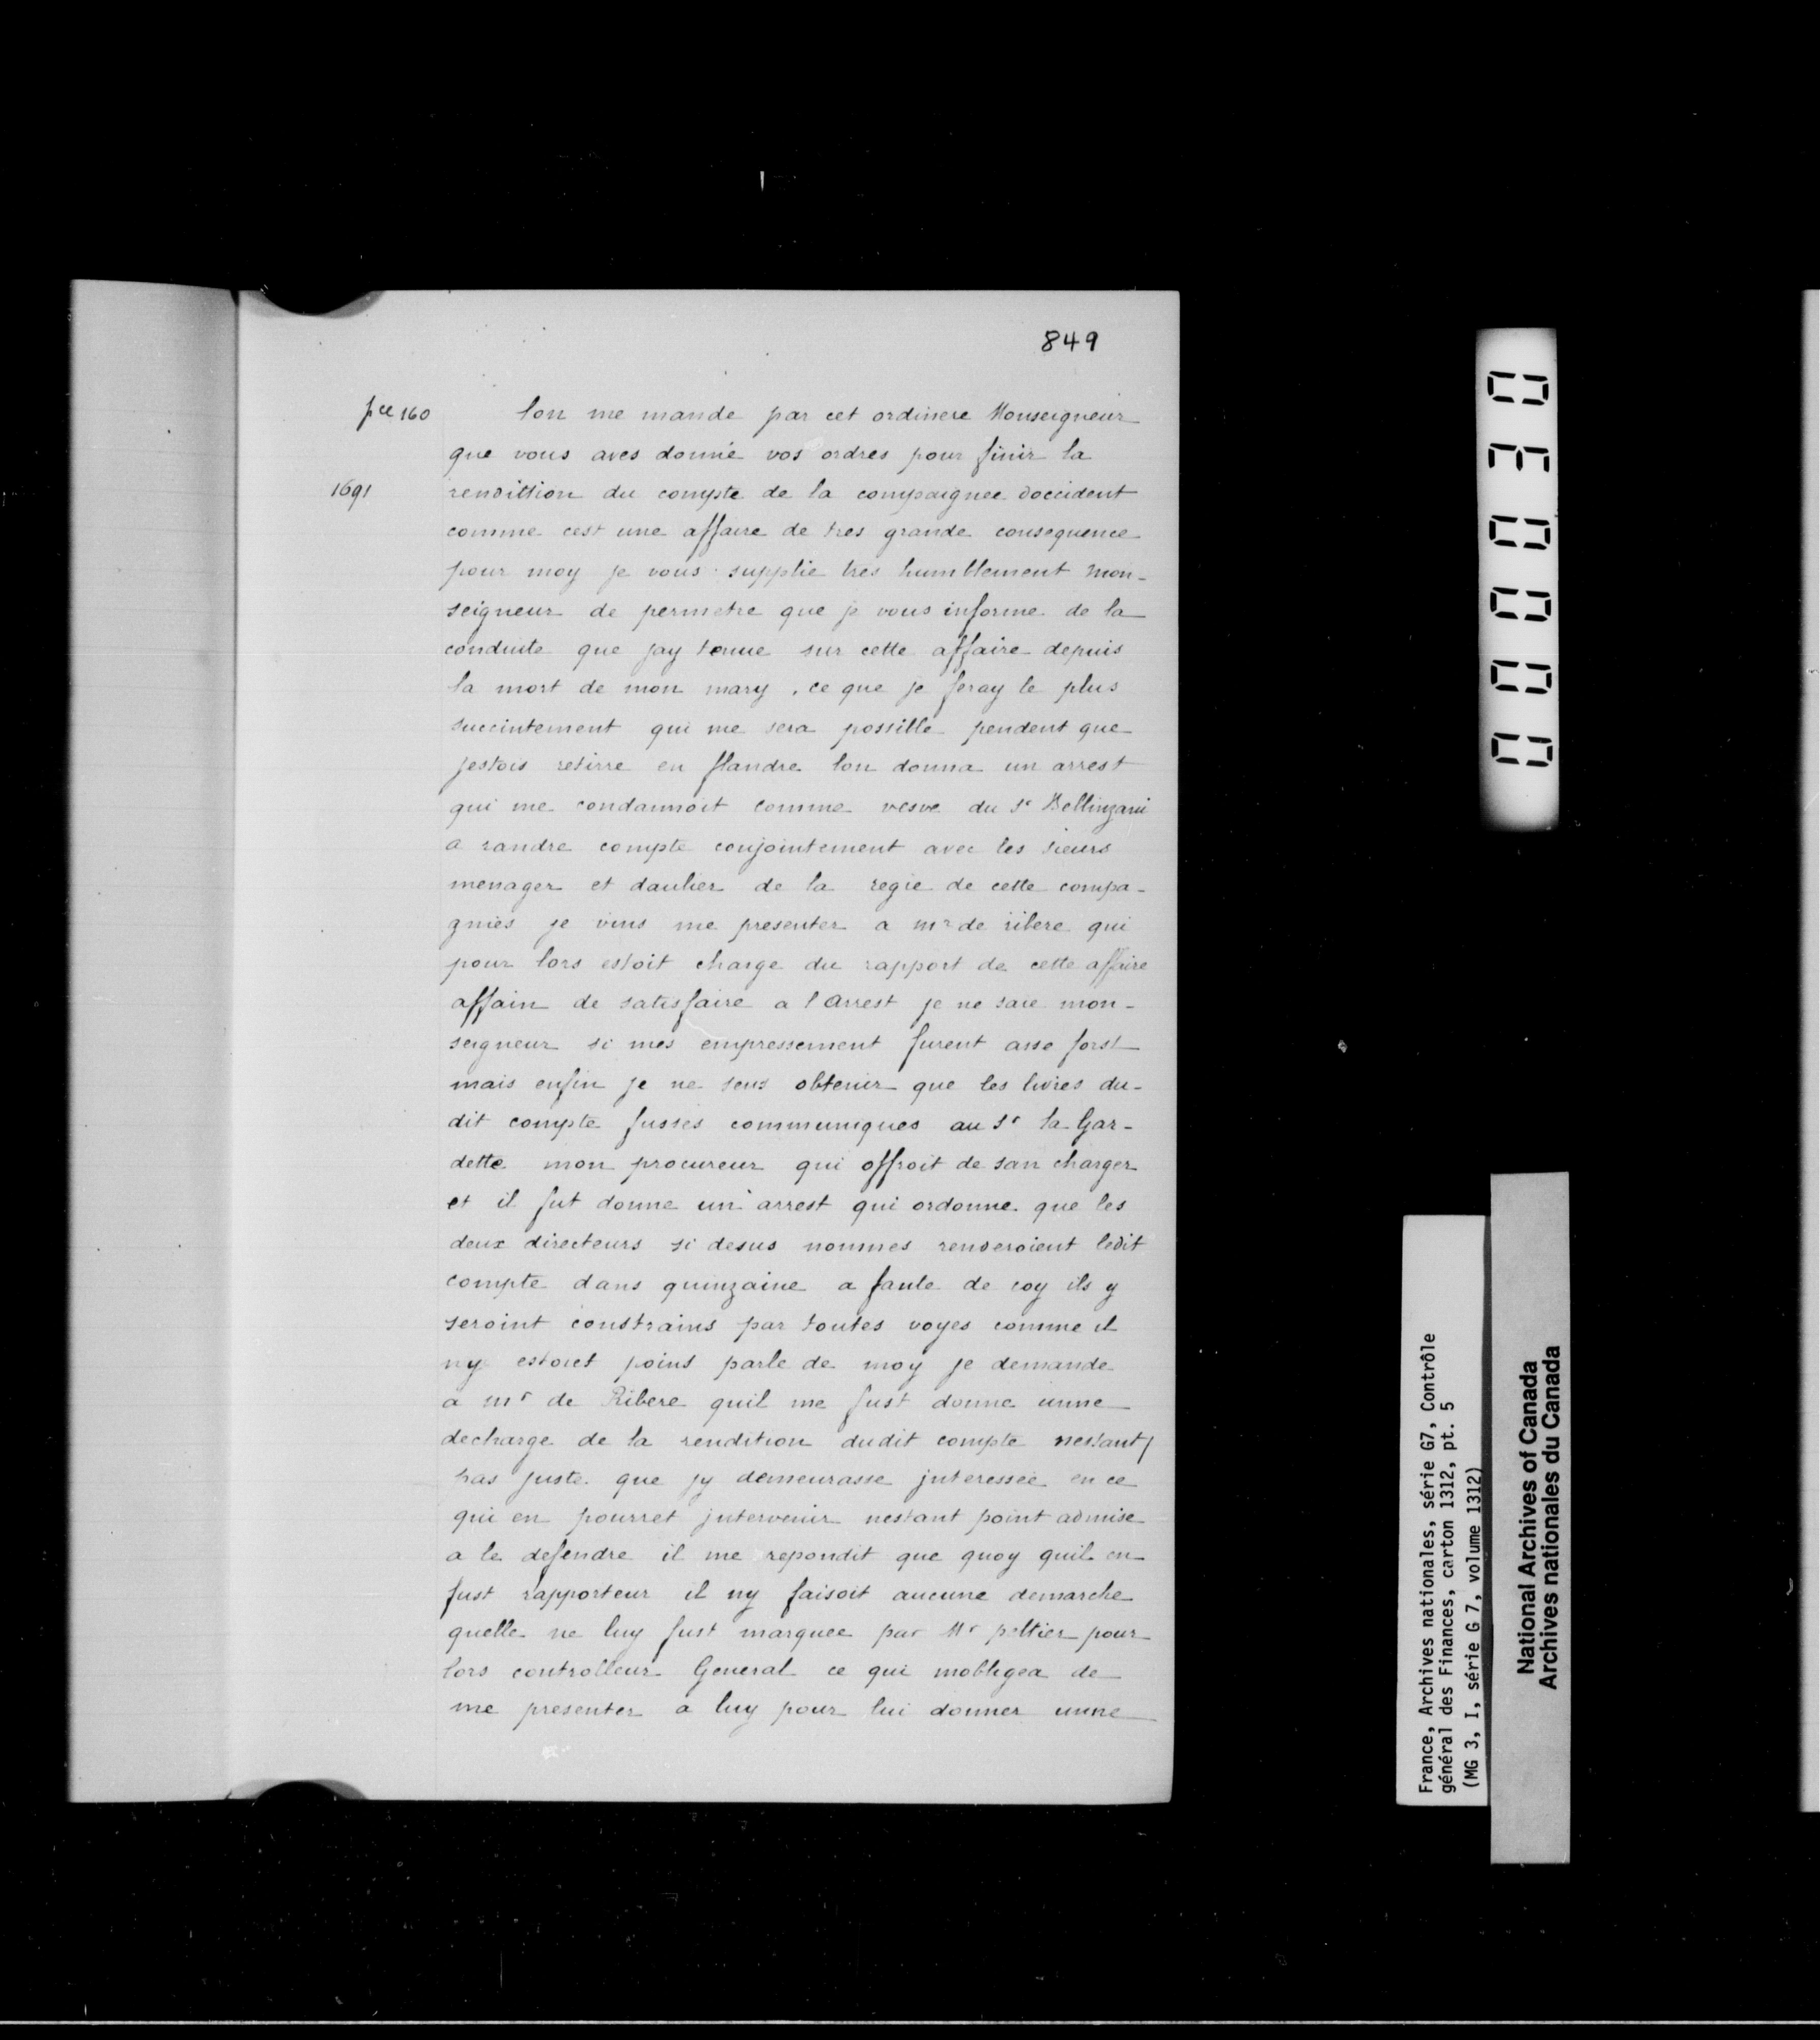 849
pce 160
lon me mande par cet ordinere Monseigneur
que vous aves donné vos ordres pour finir la
1691
rendittion du compte de la compaignee doccident
comme cest une affaire de tres grande consequence
pour moy je vous supplie tres humblement mon-
seigneur de permetre que je vous informe de la
conduite que jay tenue sur cette affaire depuis
la mort de mon mary, ce que je feray le plus
succintement qui me sera possible pendent que
jestois retirre en flandre lon donna un arrest
qui me condannoit comme vesve du Sr Bellinzani
a randre compte conjointement avec les sieurs
menager et daulier de la regie de cette compa-
gnies je vins me presenter a mr de ribere qui
pour lors estoit charge du rapport de cette affaire
affain de satisfaire a l'arrest je ne saie mon-
seigneur si mes empressement furent asse forst
mais enfin je ne seus obtenir que les livres du-
dit compte fusses communiques au Sr la Gar-
dette mon procureur qui offroit de san charger
et il fut donne un arrest qui ordonne que les
deux directeurs si desus nommes renderoient ledit
compte dans quinzaine a faute de coy ils y
seroint constrains par toutes voyes comme il
ny estoiet poins parle de moy je demande
a mr de Ribere quil me fust donne unne
decharge de la rendition dudit compte nestant
pas juste que jy demeurasse jnteressée en ce
qui en pourret jntervenir nestant point admise
a le defendre il me repondit que quoy quil en
fust rapporteur il ny faisoit aucune demarche
quelle ne luy fust marquee par Mr peltier pour
lors controlleur General ce qui mobligea de
me presenter a luy pour lui donner unne
00000030
France, Archives nationales, série G7, Contrôle
général des Finances, carton 1312, pt. 5
(MG 3, I, série G 7, volume 1312)
National Archives of Canada
Archives nationales du Canada